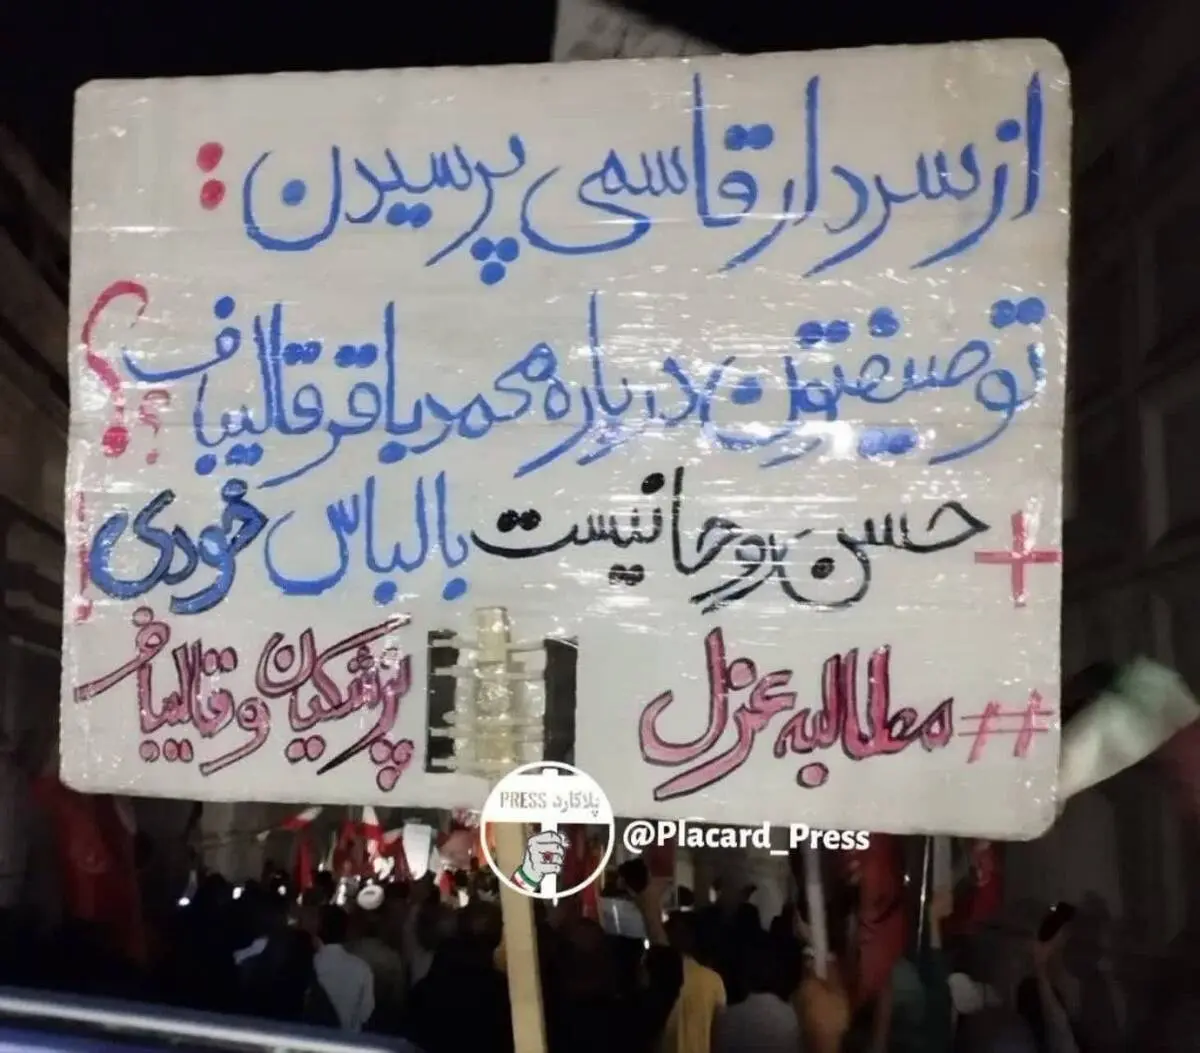 از سردار قاسمی پرسیدن :
توصیفتون درباره محمد باقر قالیباف ؟
+ حسن روحانیست با لباس خودی !
# مطالبه عزل پزشکیان و قالیباف
PRESS پلاکارد
@Placard_Press